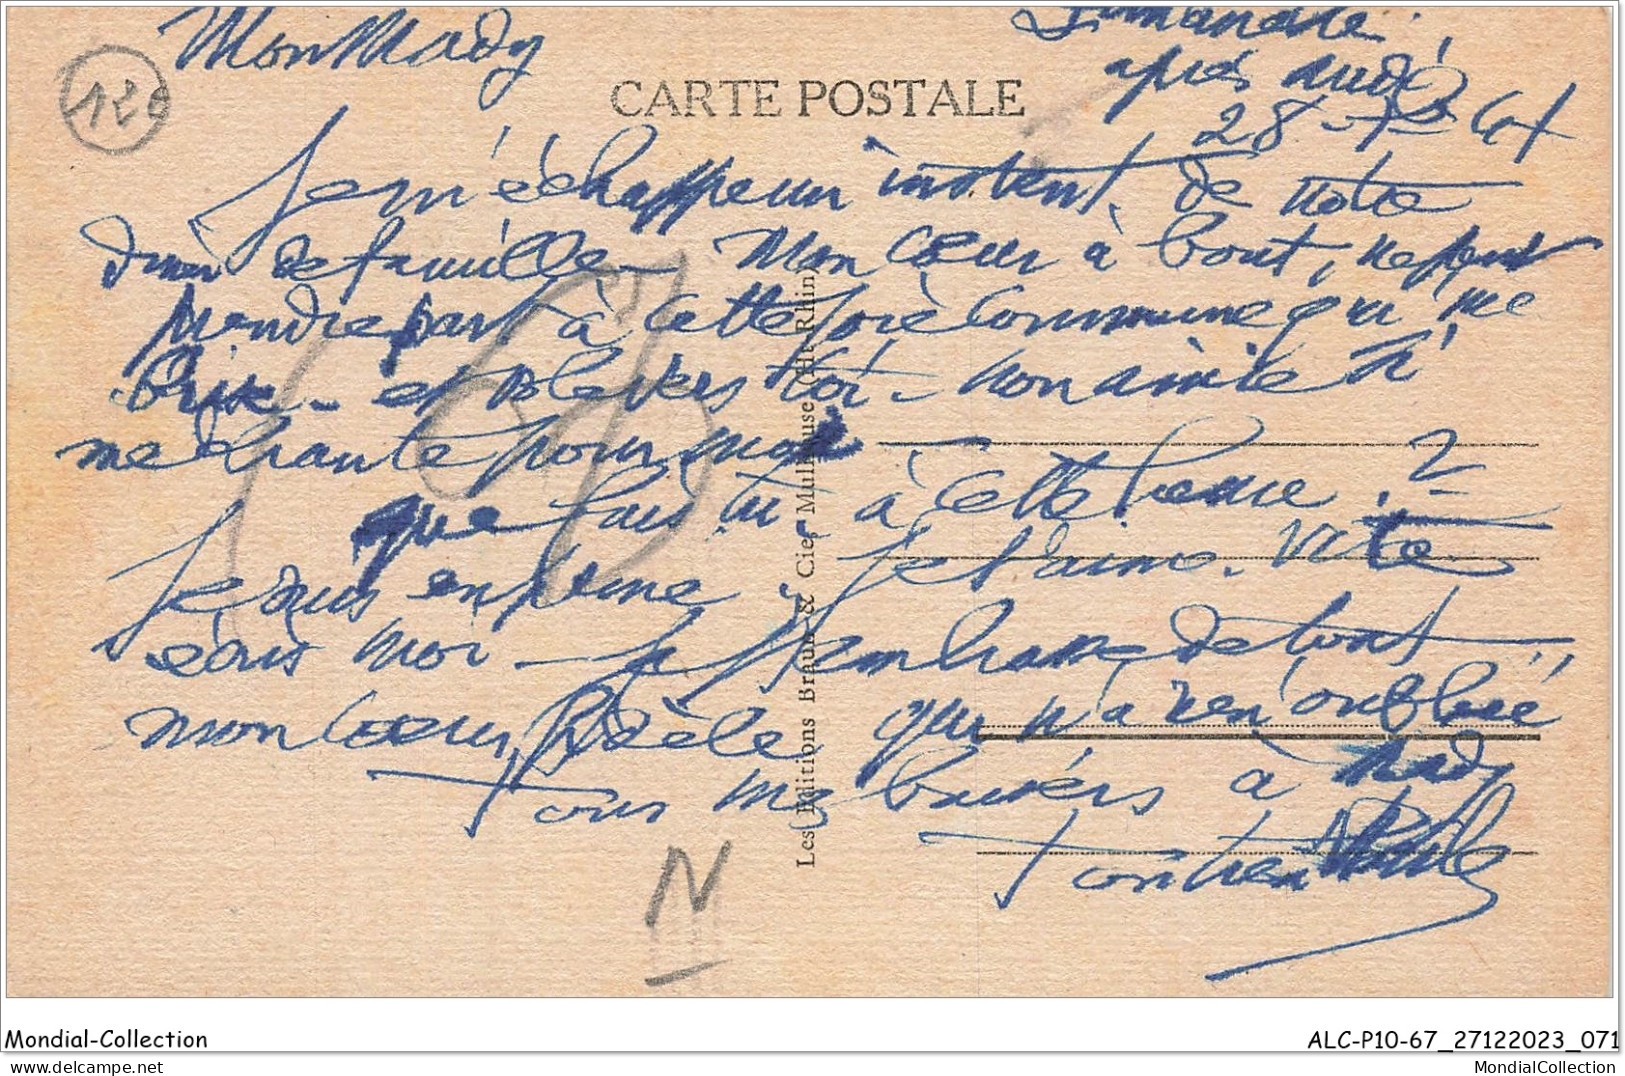 Mon Mady
Dimanche
après midi
28
CARTE POSTALE
120
Je m'échappe un instant de notre
diner de famille. Mon cœur à bout, ne peut
prendre part à cette joie commune qui me
brise - et vers toi - mon aimée
me chante pour moi
que fais tu à cette heure ?
Je suis en peine. Je t'aime. Vite
écris moi - Je t'embrasse de tout
mon cœur fidèle qui n'a rien oublié
Tous mes baisers à Mady
Ton
N
Les Editions Braun & Cie, Mulhouse (Ht-Rhin)
Mondial-Collection
ALC-P10-67_27122023_071
MondialCollection